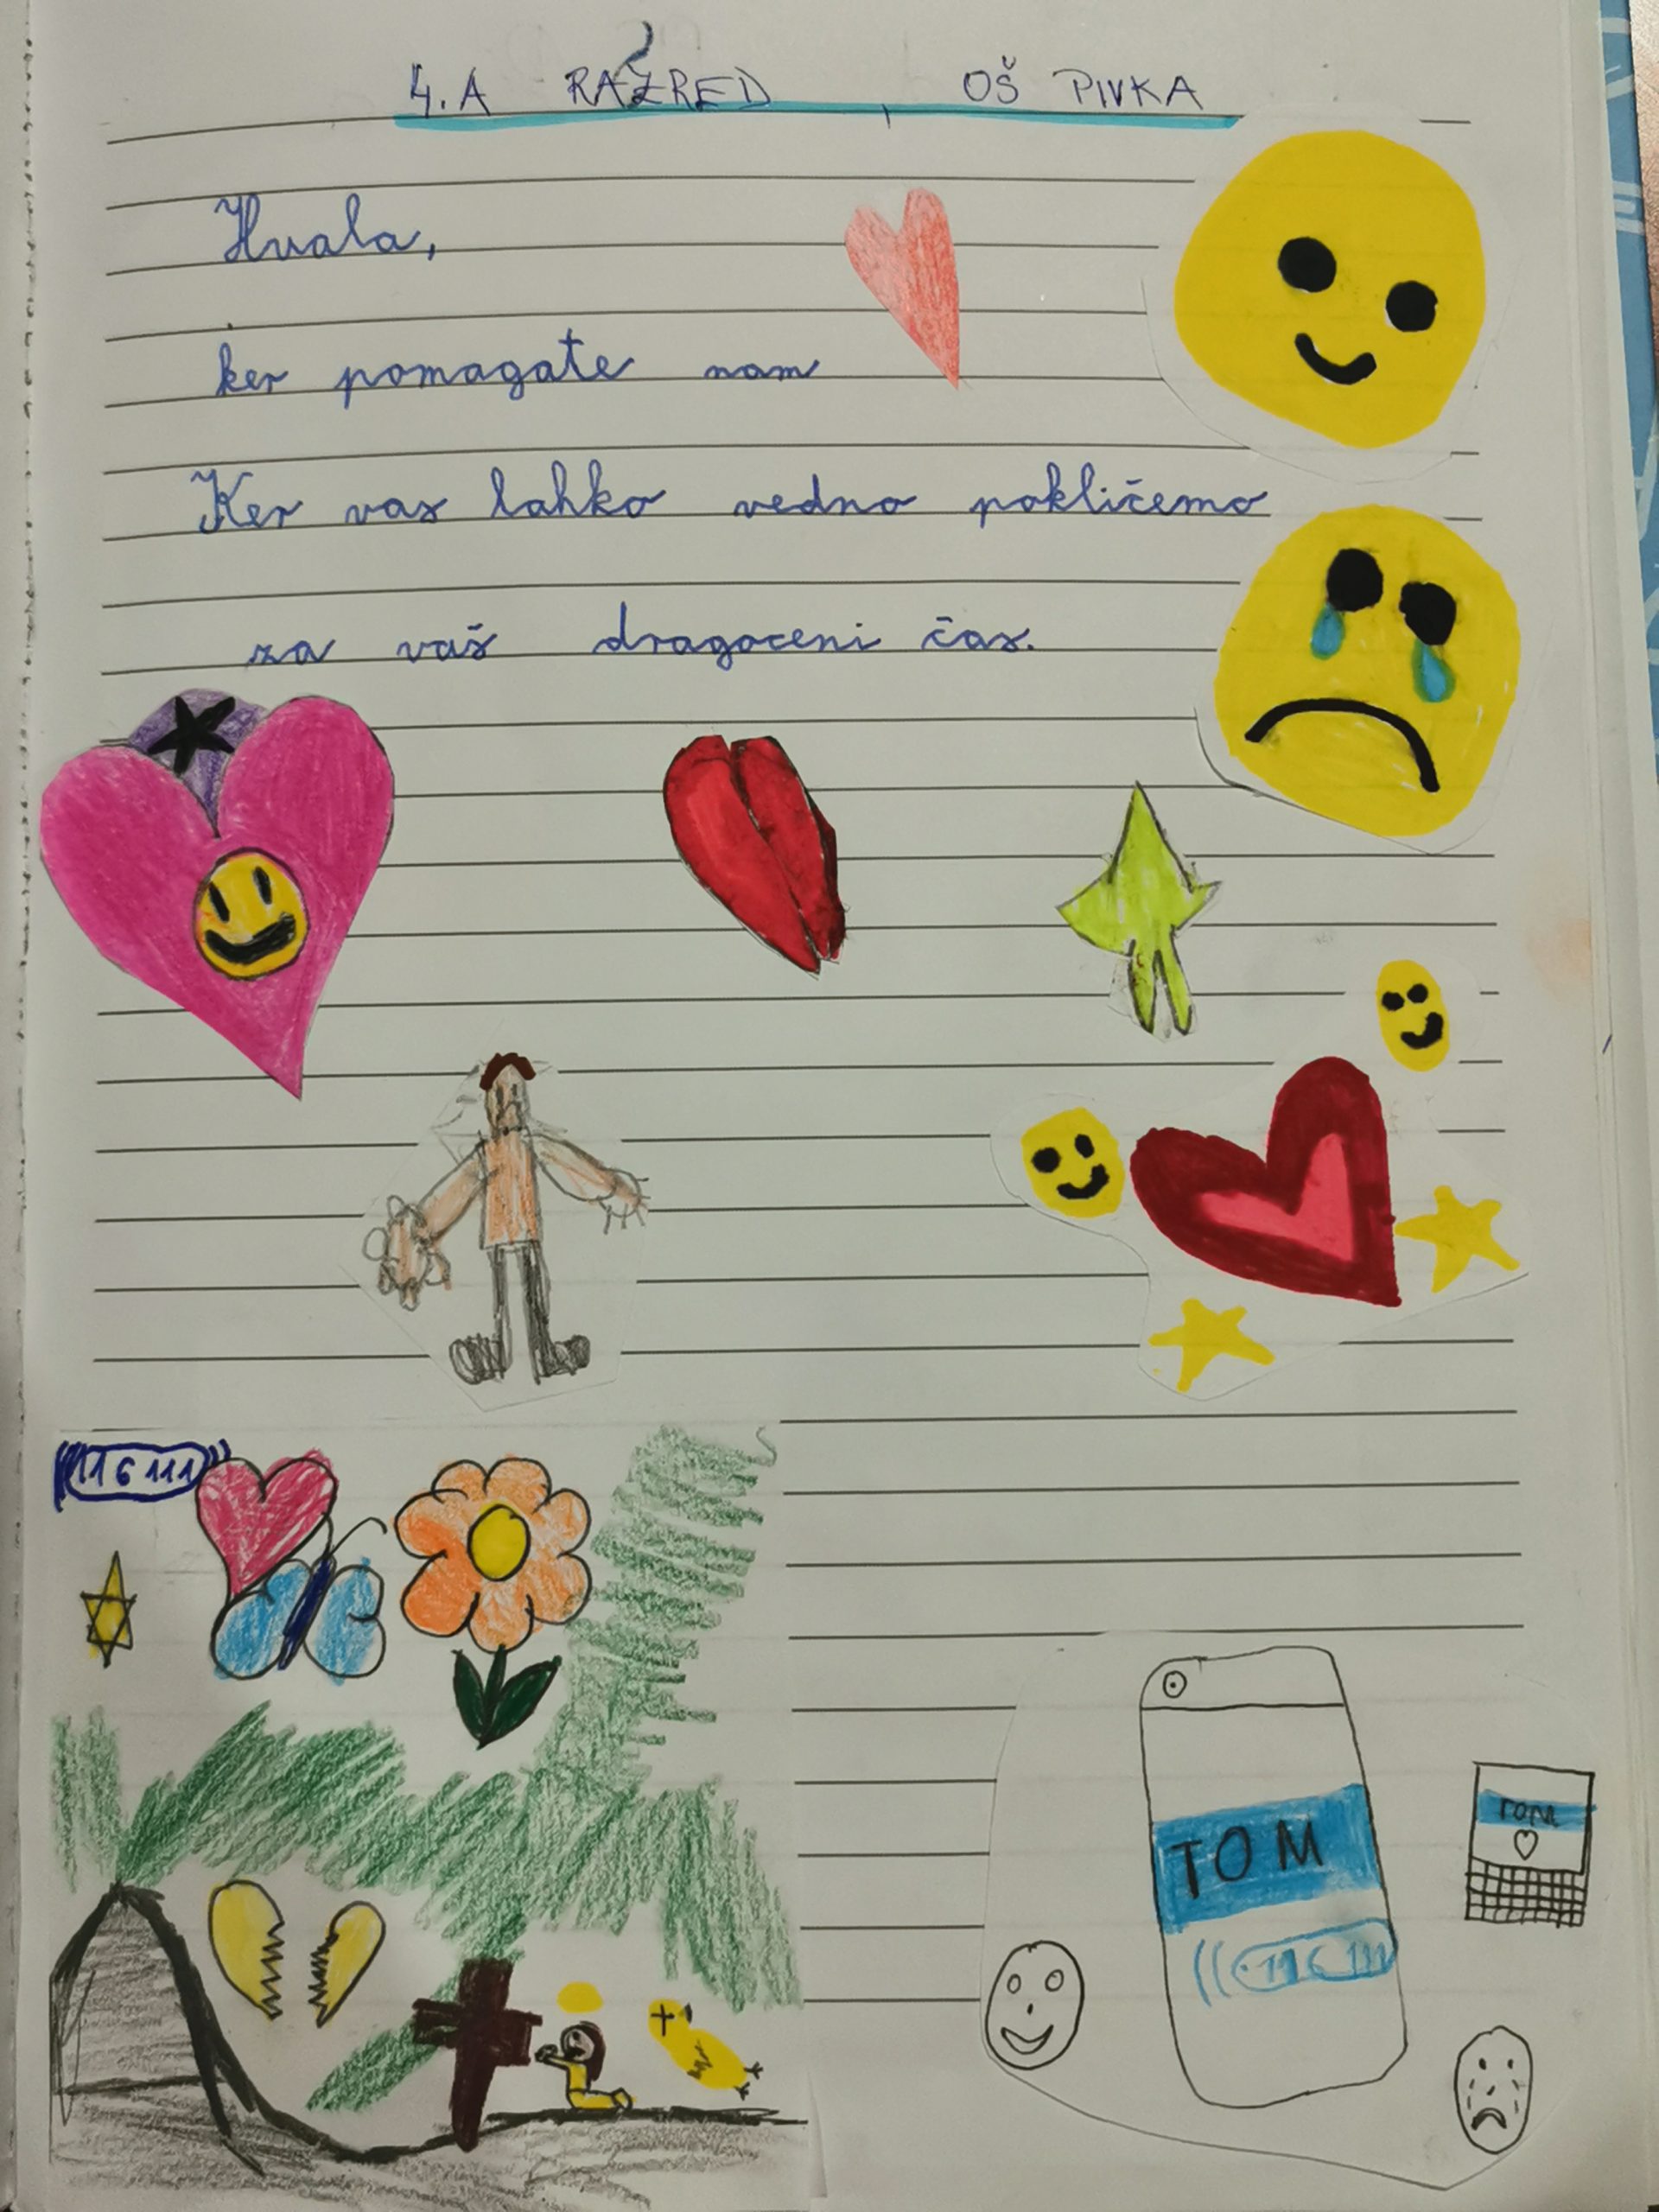 4.A RAZRED, OŠ PIVKA
Hvala,
ker pomagate nam
Ker vas lahko vedno pokličemo
za vaš dragoceni čas.
116 111
TOM
116 111
TOM